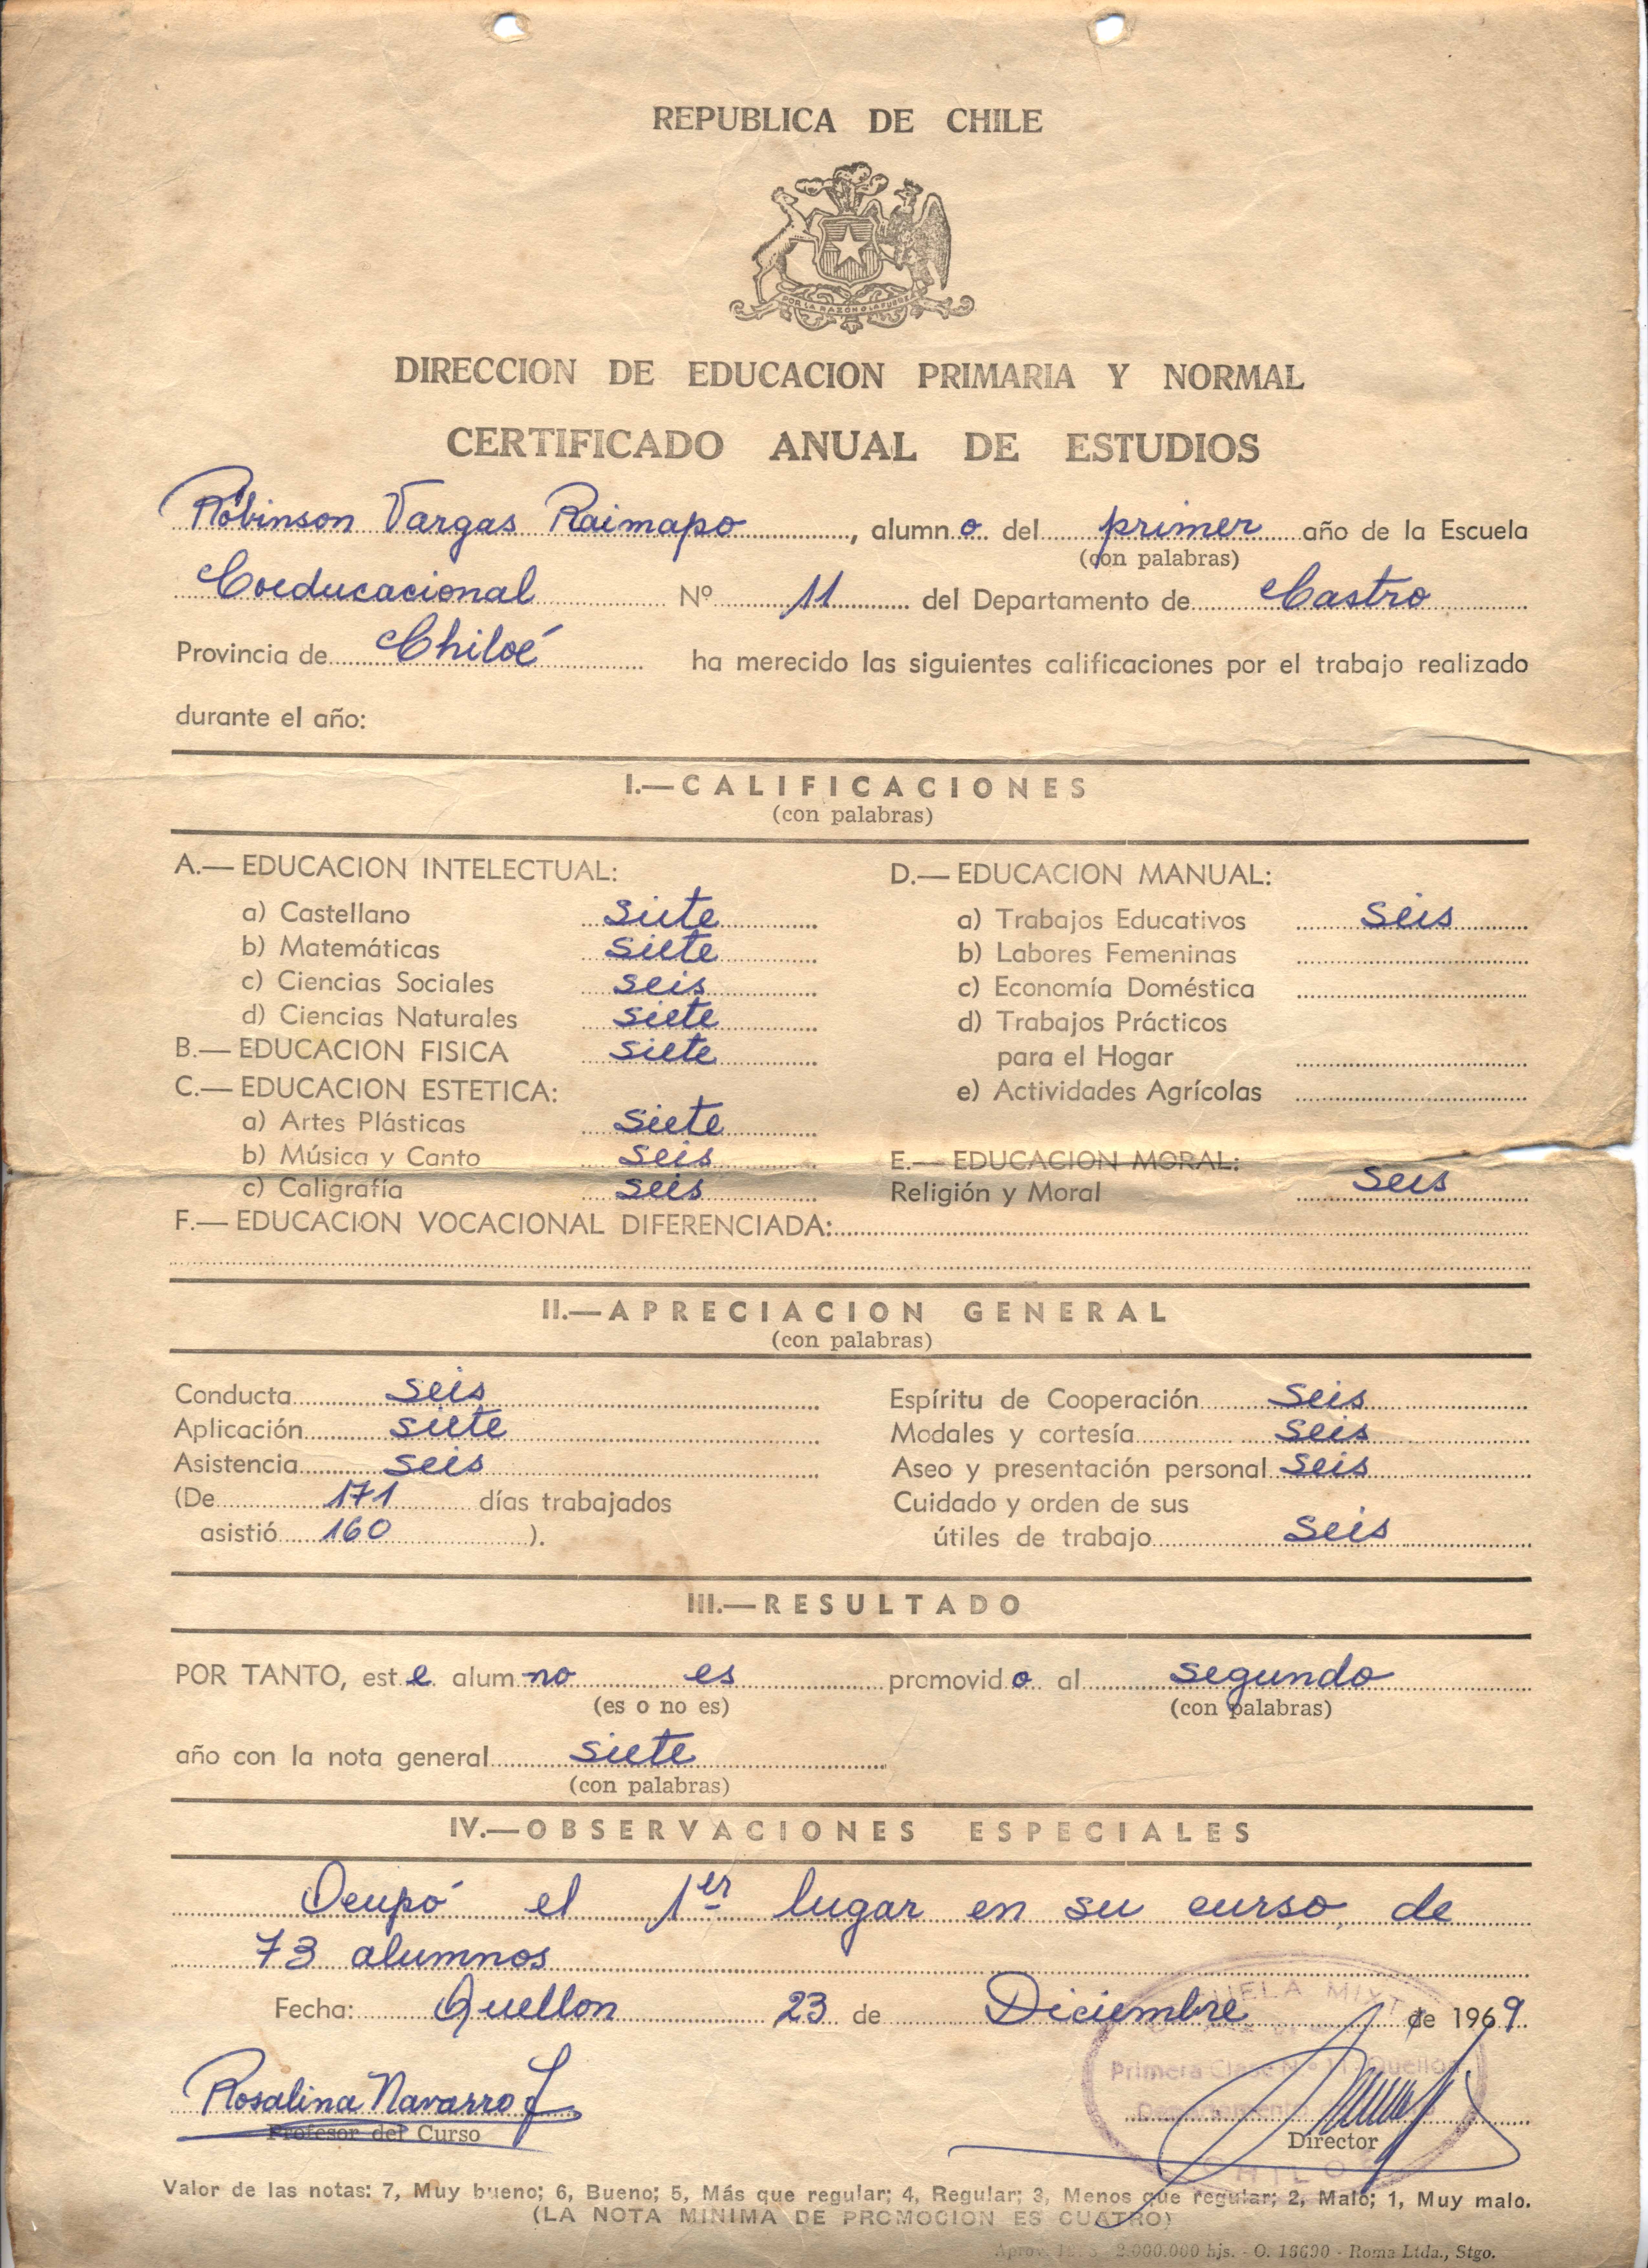 REPUBLICA DE CHILE
POR LA RAZÓN O LA FUERZA
DIRECCION DE EDUCACION PRIMARIA Y NORMAL
CERTIFICADO ANUAL DE ESTUDIOS
Róbinson Vargas Raimapo, alumno del primer año de la Escuela
(con palabras)
Coeducacional Nº 11 del Departamento de Castro
Provincia de Chiloé ha merecido las siguientes calificaciones por el trabajo realizado
durante el año:
I.—CALIFICACIONES
(con palabras)
A.— EDUCACION INTELECTUAL:
a) Castellano siete
b) Matemáticas siete
c) Ciencias Sociales seis
d) Ciencias Naturales siete
B.— EDUCACION FISICA siete
C.— EDUCACION ESTETICA:
a) Artes Plásticas siete
b) Música y Canto seis
c) Caligrafía seis
D.— EDUCACION MANUAL:
a) Trabajos Educativos seis
b) Labores Femeninas
c) Economía Doméstica
d) Trabajos Prácticos
para el Hogar
e) Actividades Agrícolas
E.— EDUCACION MORAL:
Religión y Moral seis
F.— EDUCACION VOCACIONAL DIFERENCIADA:
II.—APRECIACION GENERAL
(con palabras)
Conducta seis
Aplicación siete
Asistencia seis
(De 171 días trabajados
asistió 160 ).
Espíritu de Cooperación seis
Modales y cortesía seis
Aseo y presentación personal seis
Cuidado y orden de sus
útiles de trabajo seis
III.—RESULTADO
POR TANTO, este alumno es promovido al segundo
(es o no es) (con palabras)
año con la nota general siete
(con palabras)
IV.—OBSERVACIONES ESPECIALES
Ocupó el 1er lugar en su curso, de
73 alumnos
Fecha: Quellon 23 de Diciembre de 1969
Primera Clase N.o 11 - Quellón
Departamento
Rosalina Navarro J
Profesor del Curso
Director
Valor de las notas: 7, Muy bueno; 6, Bueno; 5, Más que regular; 4, Regular; 3, Menos que regular; 2, Malo; 1, Muy malo.
(LA NOTA MINIMA DE PROMOCION ES CUATRO)
2.000.000 hjs. - O. 16690 - Roma Ltda., Stgo.